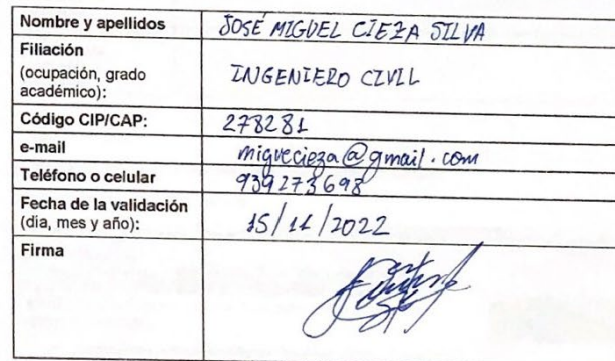 Nombre y apellidos JOSÉ MIGUEL CIEZA SILVA
Filiación
(ocupación, grado
académico): INGENIERO CIVIL
Código CIP/CAP: 278281
e-mail miguecieza@gmail.com
Teléfono o celular 939273698
Fecha de la validación
(dia, mes y año): 15/11/2022
Firma